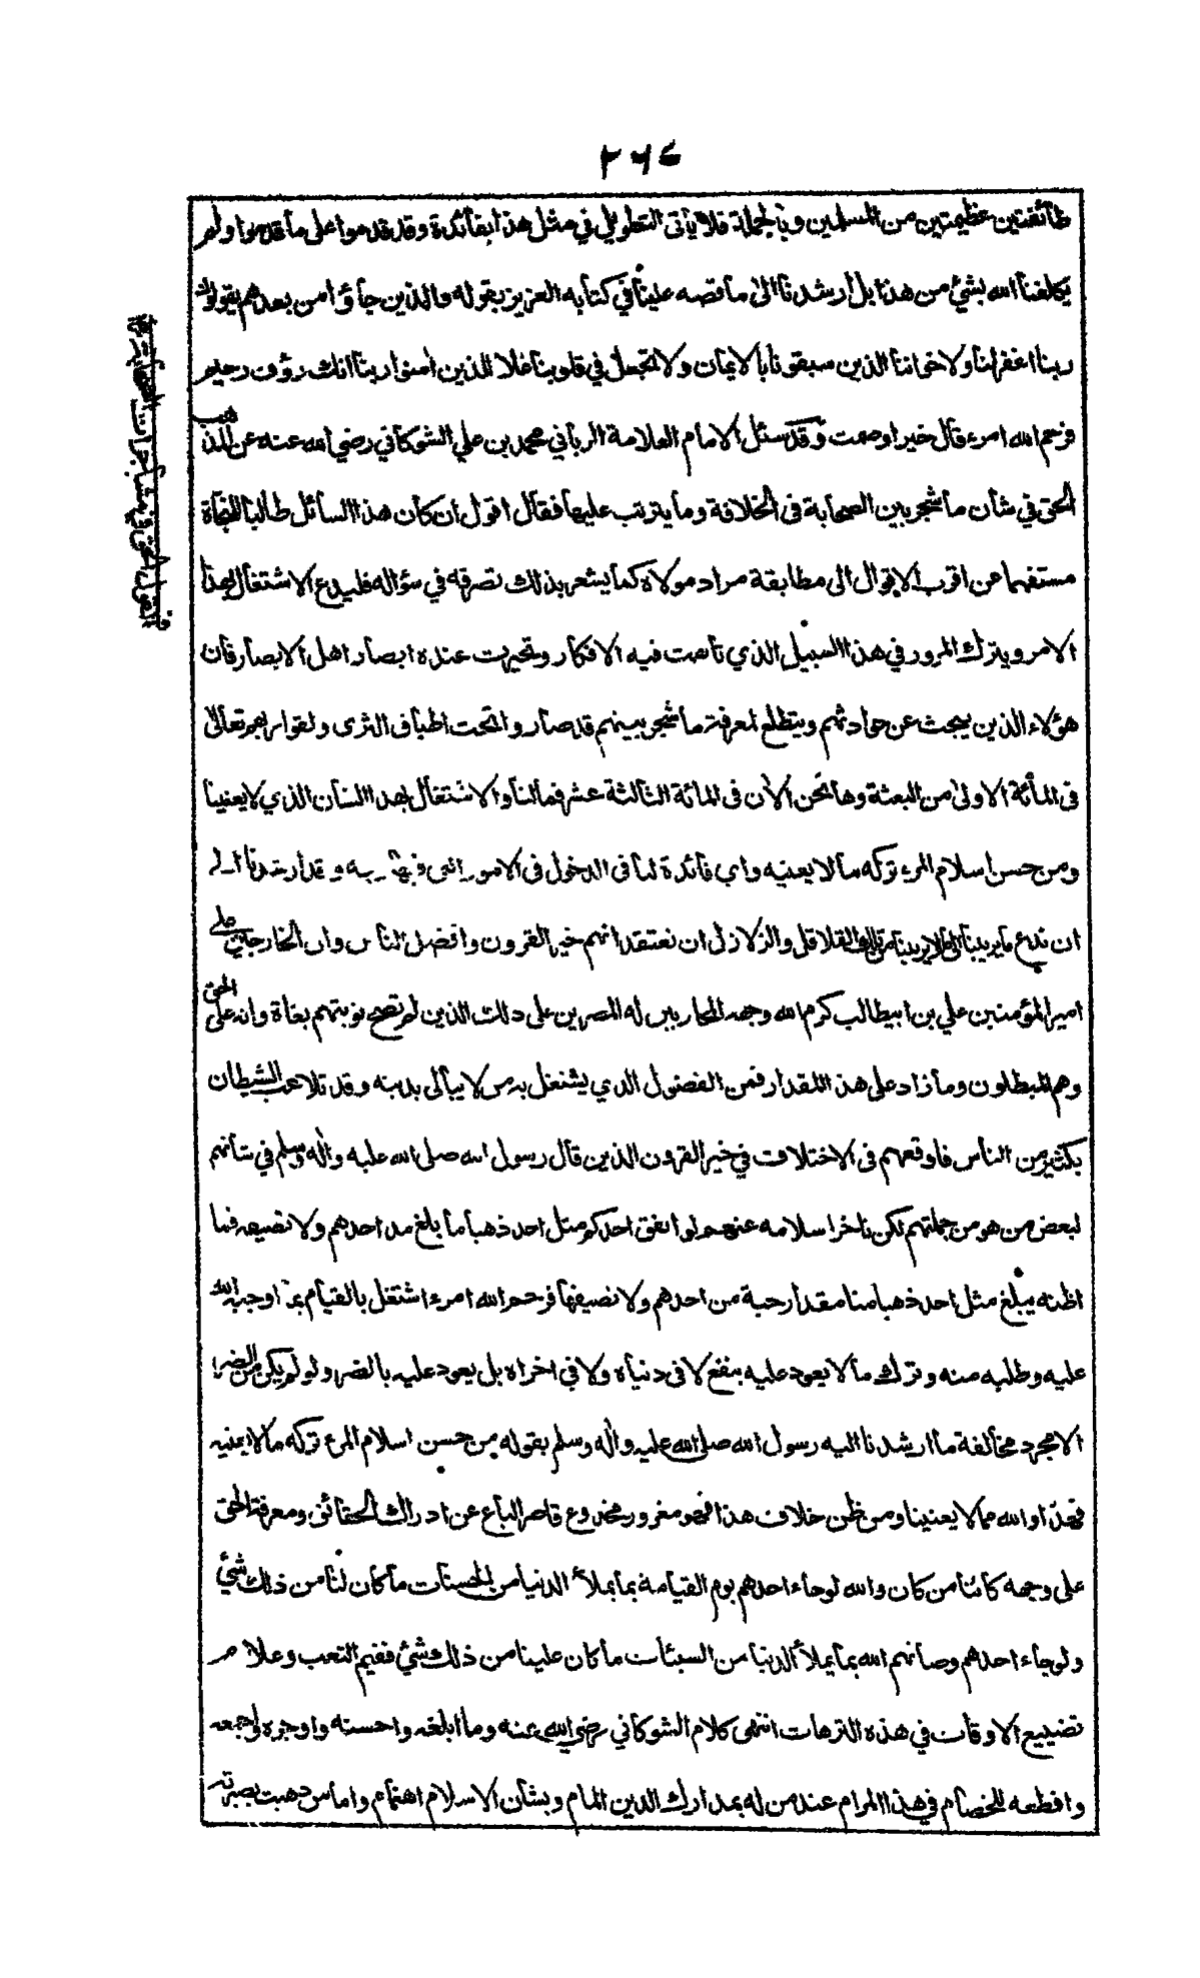 ٢٦٧
طائفتين عظيمتين من المسلمين وبالجملة فلا يأتى التطويل في مثل هذا بفائدة وقد قدموا على ما قدموا ولم
يكلفنا الله بشئ من هذا بل أرشدنا الى ما قصه علينا في كتابه العزيز بقوله والذين جاؤا من بعدهم يقولون
ربنا اغفر لنا ولاخواننا الذين سبقونا بالايمان ولا تجعل في قلوبنا غلا للذين اٰمنوا ربنا انك رؤف رحيم
فرحم الله امرء قال خيرا وصمت وقد سئل الامام العلامة الرباني محمد بن علي الشوكاني رضي الله عنه عن المذهب
الحق في شأن ما شجر بين الصحابة فى الخلافة وما يترتب عليها فقال اقول ان كان هذا السائل طالبا للنجاة
مستفهما عن اقرب الاقوال الى مطابقة مراد مولاه كما يشعر بذلك تصرفه في سؤاله فليدع الاشتغال بهذا
الامر ويترك المرور في هذا السبيل الذي تاهت فيه الافكار وتحيرت عنده ابصار اهل الابصار فان
هؤلاء الذين يبحث عن حوادثهم ويتطلع لمعرفة ما شجر بينهم قد صاروا تحت اطباق الثرى ولقوا ربهم تعالى
فى المائة الاولى من البعثة وها نحن الاٰن فى المائة الثالثة عشر فما لنا والاشتغال بهذا الشان الذي لا يعنينا
ومن حسن اسلام المرء تركه ما لا يعنيه واي فائدة لنا فى الدخول فى الامور التى فيها ريبة وقد ارشدنا الى
ان ندع ما يريبنا الى ما لا يريبنا من تلك القلاقل والزلازل ان نعتقد انهم خير القرون وافضل الناس وان الخارجين على
امير المؤمنين علي بن ابيطالب كرم الله وجهه المحاربين له المصرين على ذلك الذين لم تصح توبتهم بغاة وانه على الحق
وهم المبطلون وما زاد على هذا المقدار فمن الفضول الذي يشتغل به من لا يبالى بدينه وقد تلاعب الشيطان
بكثير من الناس فاوقعهم فى الاختلاف في خير القرون الذين قال رسول الله صلى الله عليه واٰله وسلم في شأنهم
لبعض من هو من جملتهم لكن تاخر اسلامه عنهم لو انفق احدكم مثل احد ذهبا ما بلغ مد احدهم ولا نصيفه فما
اظنه يبلغ مثل احد ذهبا منا مقدار حبة من احدهم ولا نصيفها فرحم الله امرء اشتغل بالقيام بما اوجبه الله
عليه وطلبه منه وترك ما لا يعود عليه بنفع لا فى دنياه ولا في اخراه بل يعود عليه بالضر ولو لم يكن من الضرر
الا مجرد مخالفة ما ارشدنا اليه رسول الله صلى الله عليه واٰله وسلم بقوله من حسن اسلام المرء تركه ما لا يعنيه
فهذا والله مما لا يعنينا ومن ظن خلاف هذا فهو مغرور مخدوع قاصر الباع عن ادراك الحقائق ومعرفة الحق
على وجهه كائنا من كان والله لو جاء احدهم يوم القيامة بما يملأ الدنيا من الحسنات ما كان لنا من ذلك شئ
ولو جاء احدهم وصانهم الله بما يملأ الدنيا من السيئات ما كان علينا من ذلك شئ ففيم التعب وعلام
تضييع الاوقات في هذه الترهات انتهى كلام الشوكاني رضي الله عنه وما ابلغه واحسنه واوجزه واجمعه
واقطعه للخصام في هذا المرام عند من له بمدارك الدين المام وبشان الاسلام اهتمام واما من ذهبت بصيرته